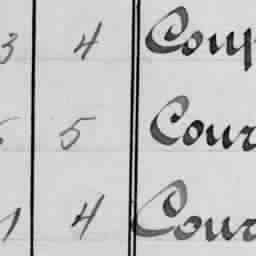 3 4 Coup
5 Cour
1 4 Cour